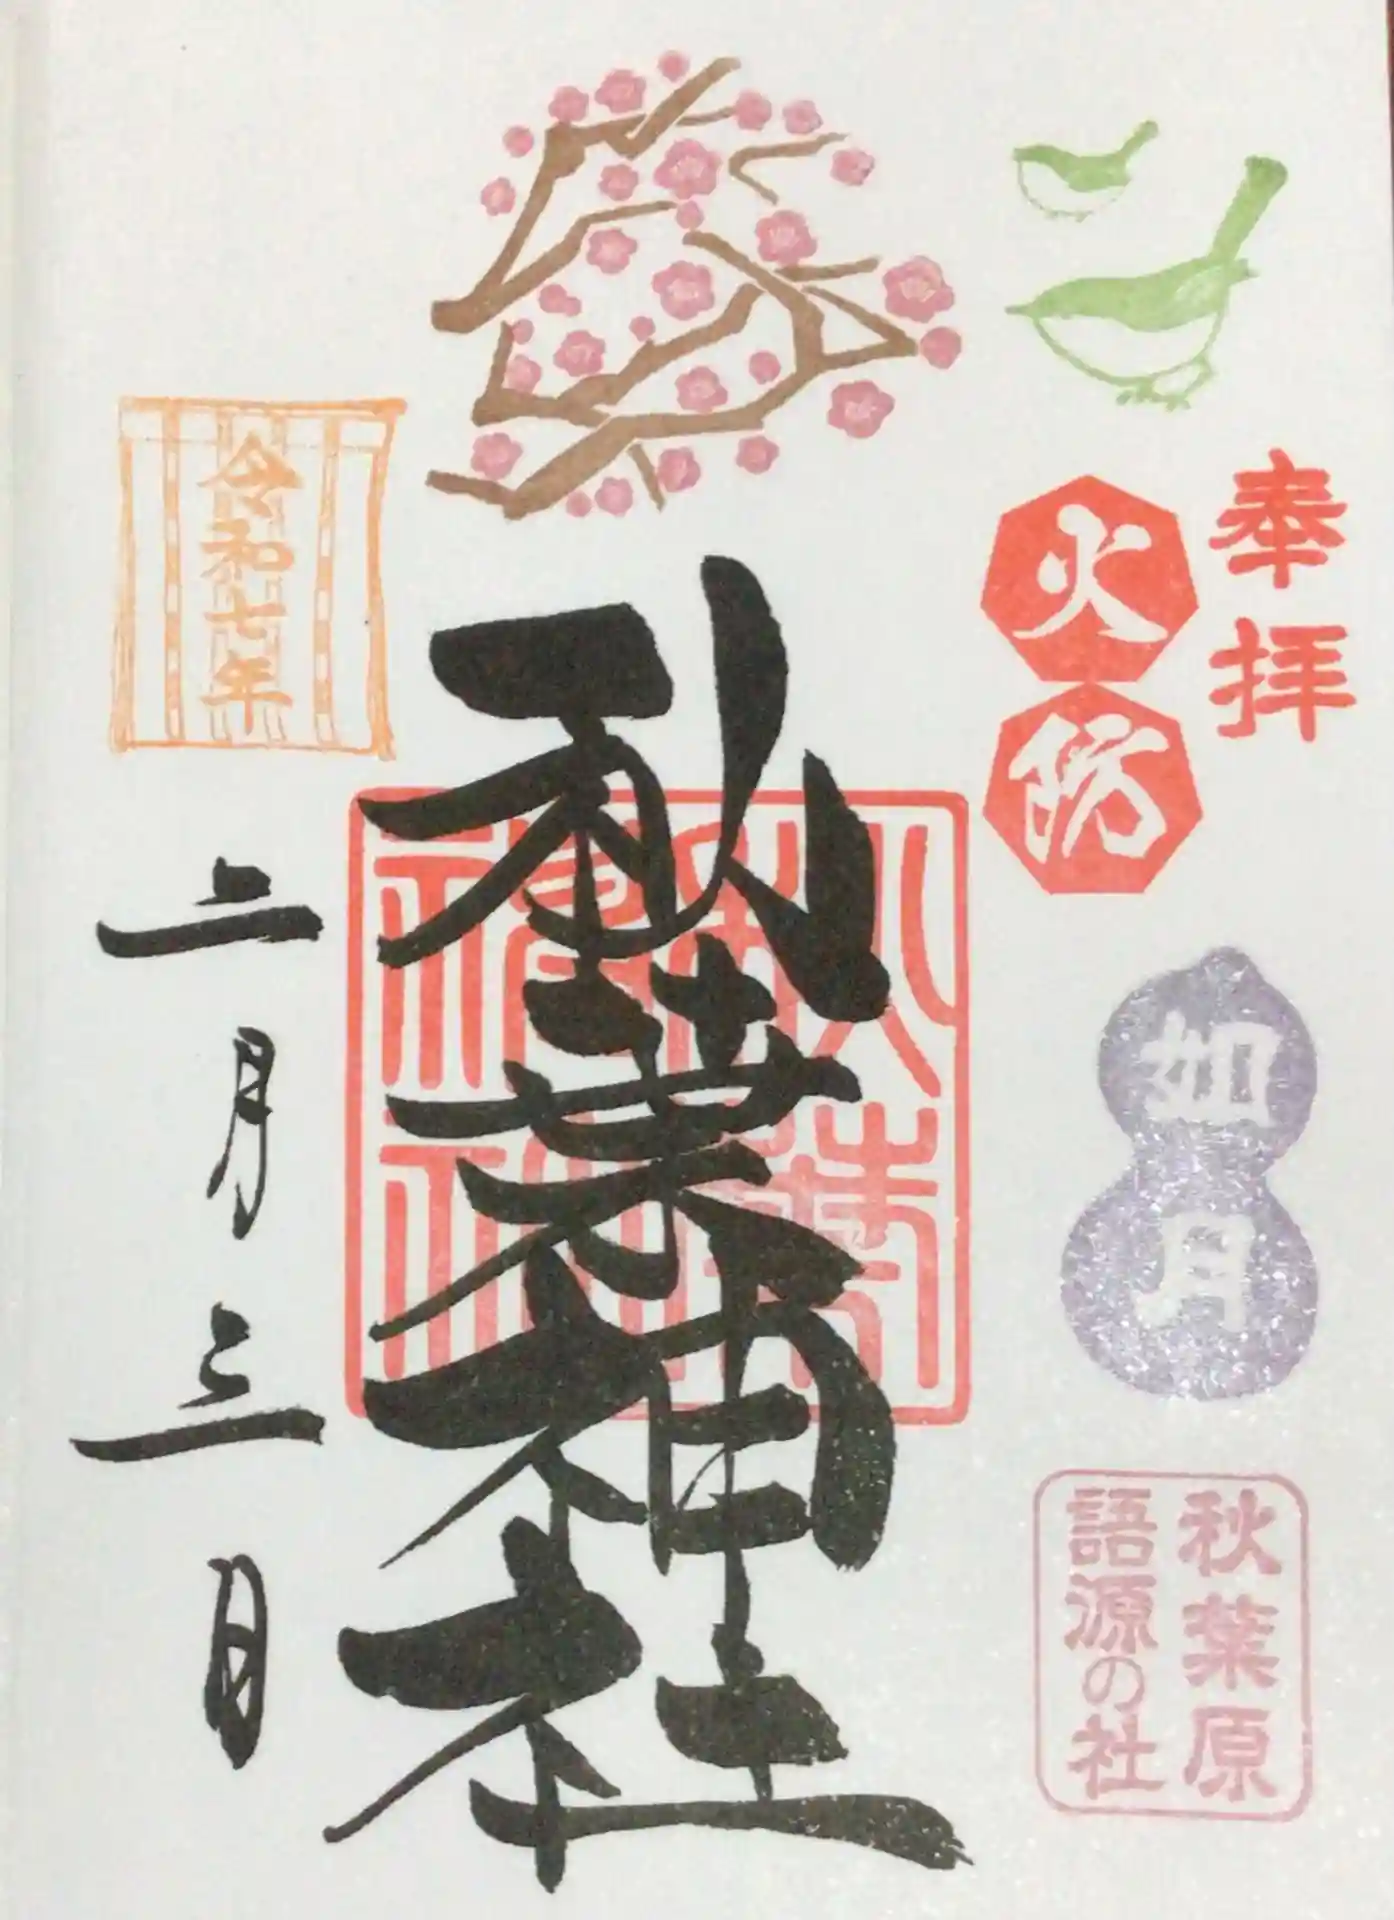 奉拝
火防
如月
秋葉原
語源の社
秋葉神社
令和七年
二月三日